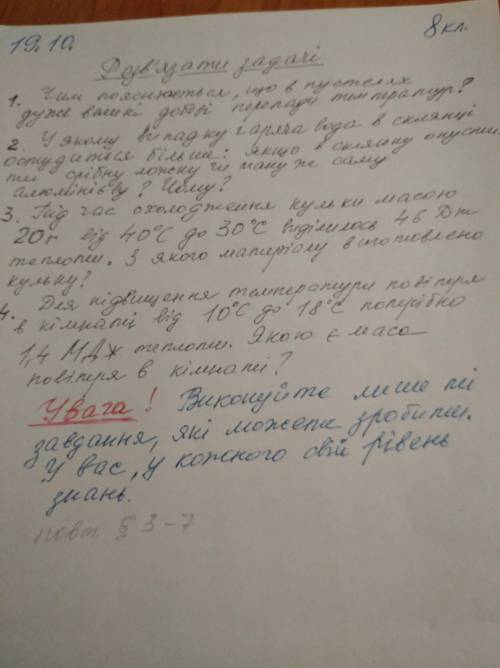 19.10.
8 кл.
Розв'язати задачі
1. Чим пояснюється, що в пустелях
дуже великі добові перепади температур?
2. У якому випадку гаряча вода в склянці
остудиться більше: якщо в склянку опустити
срібну ложку чи таку ж саму
алюмінієву? Чому?
3. Під час охолодження кульки масою
20г від 40°С до 30°С виділилось 46 Дж
теплоти. З якого матеріалу виготовлено
кульку?
4. Для підвищення температури повітря
в кімнаті від 10°С до 18°С потрібно
1,4 МДж теплоти. Якою є маса
повітря в кімнаті?
Увага! Виконуйте лише ті
завдання, які можете зробити.
У вас, у кожного свій рівень
знань.
повт. § 3-7